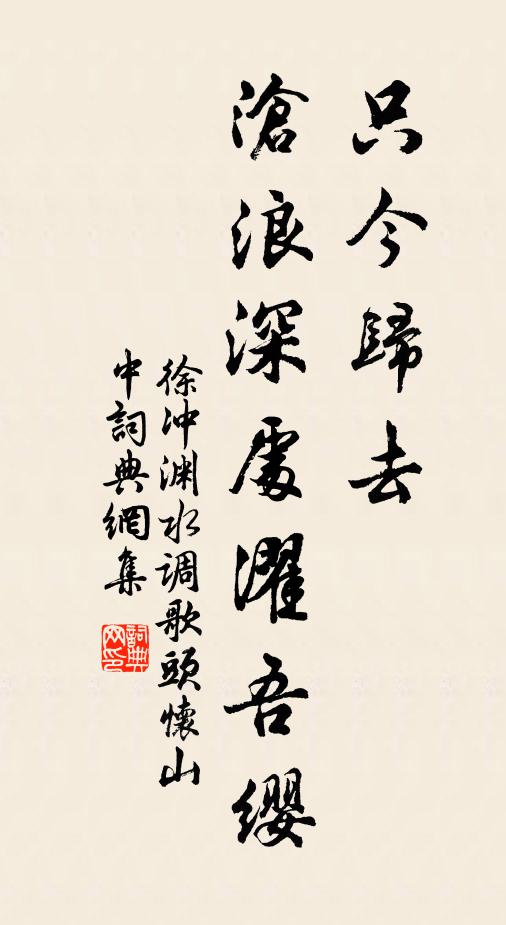 只今歸去
滄浪深處濯吾纓
徐冲渊水调歌頭懷山
中詞典網集
詞典
网印